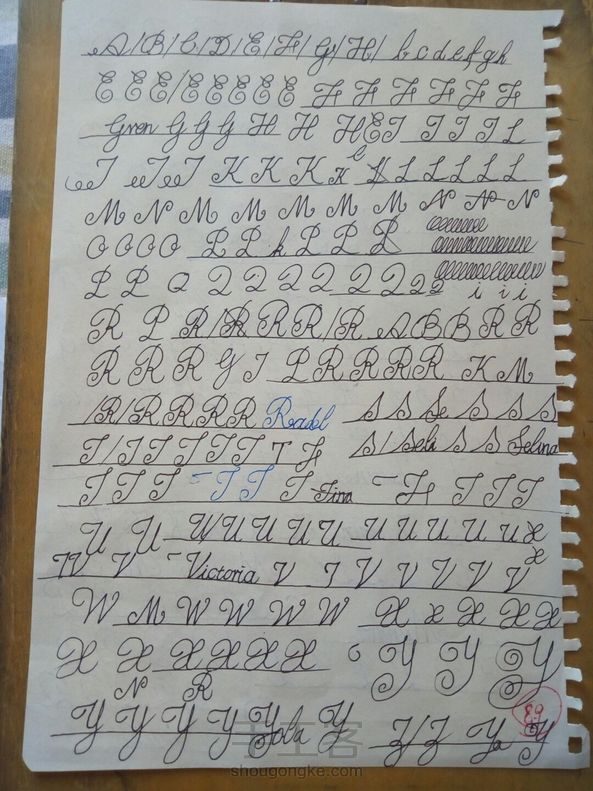 A/B/C/D/E/F/G/H/ b c d e f g h
E E E/E E E E E F F F F F F
Gren G G G H H H E I I I I L
I I I K K K K K L L L L L L
M N M M M M M N N N
O O O O P P h P P P
P P Q Q Q Q Q Q Q Q Q Q i i i
R P R/R R R/R A B B R R
R R R G I P R R R R K M
/R/R R R R S S Se S S S
T/T T T T T T F S/Seli S S Selina
T T T T T T Tina F T T T
U U U U U U U U U U U U X
V V Victoria V V V V V V V X
W M W W W W X X X X X
X X X X X X Y Y Y
N R
Y Y Y Y Yola Y Z/Z Ya Y
89
手工客
shougongke.com